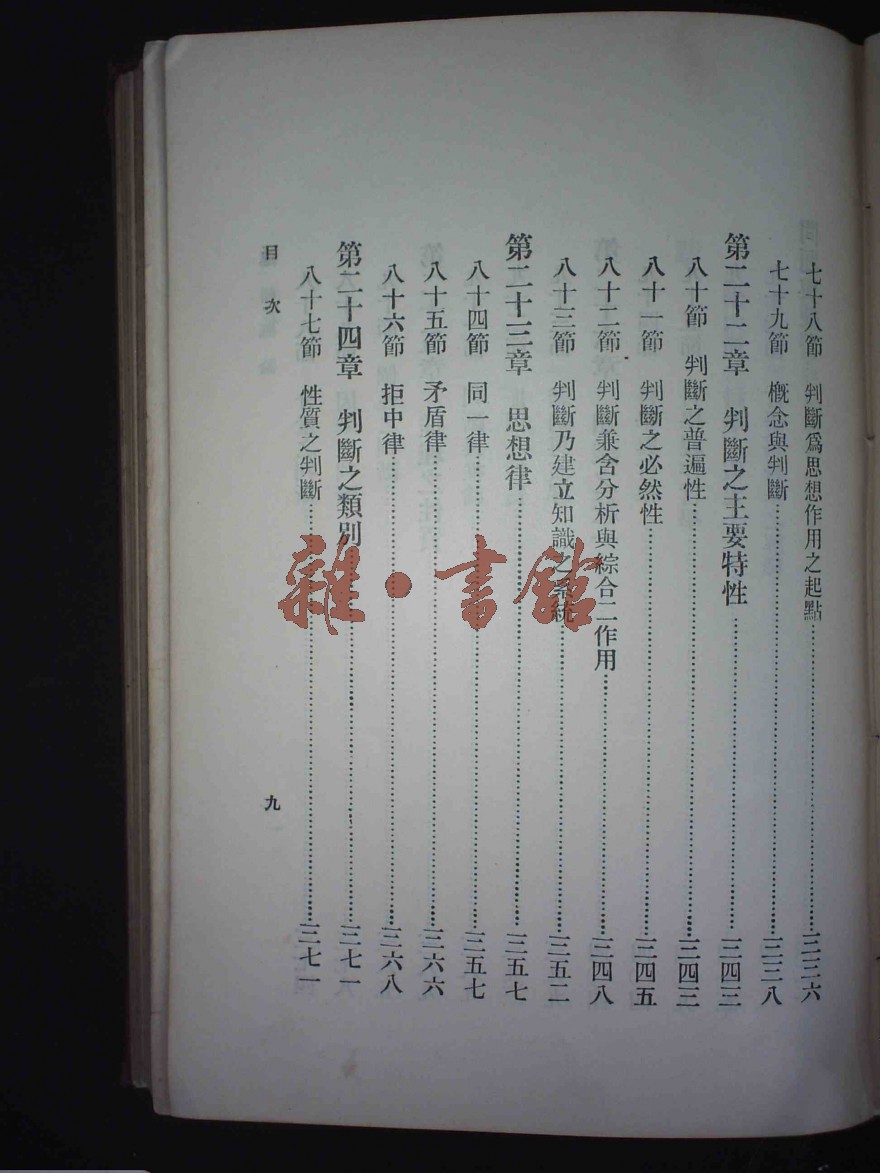 七十八節　判斷爲思想作用之起點……三三六
七十九節　概念與判斷……三三八
第二十二章　判斷之主要特性……三四三
八十節　判斷之普遍性……三四三
八十一節　判斷之必然性……三四五
八十二節　判斷兼含分析與綜合二作用……三四八
八十三節　判斷乃建立知識之系統……三五二
第二十三章　思想律……三五七
八十四節　同一律……三五七
八十五節　矛盾律……三六六
八十六節　拒中律……三六八
第二十四章　判斷之類別……三七一
八十七節　性質之判斷……三七一
目次　九
雜·書館